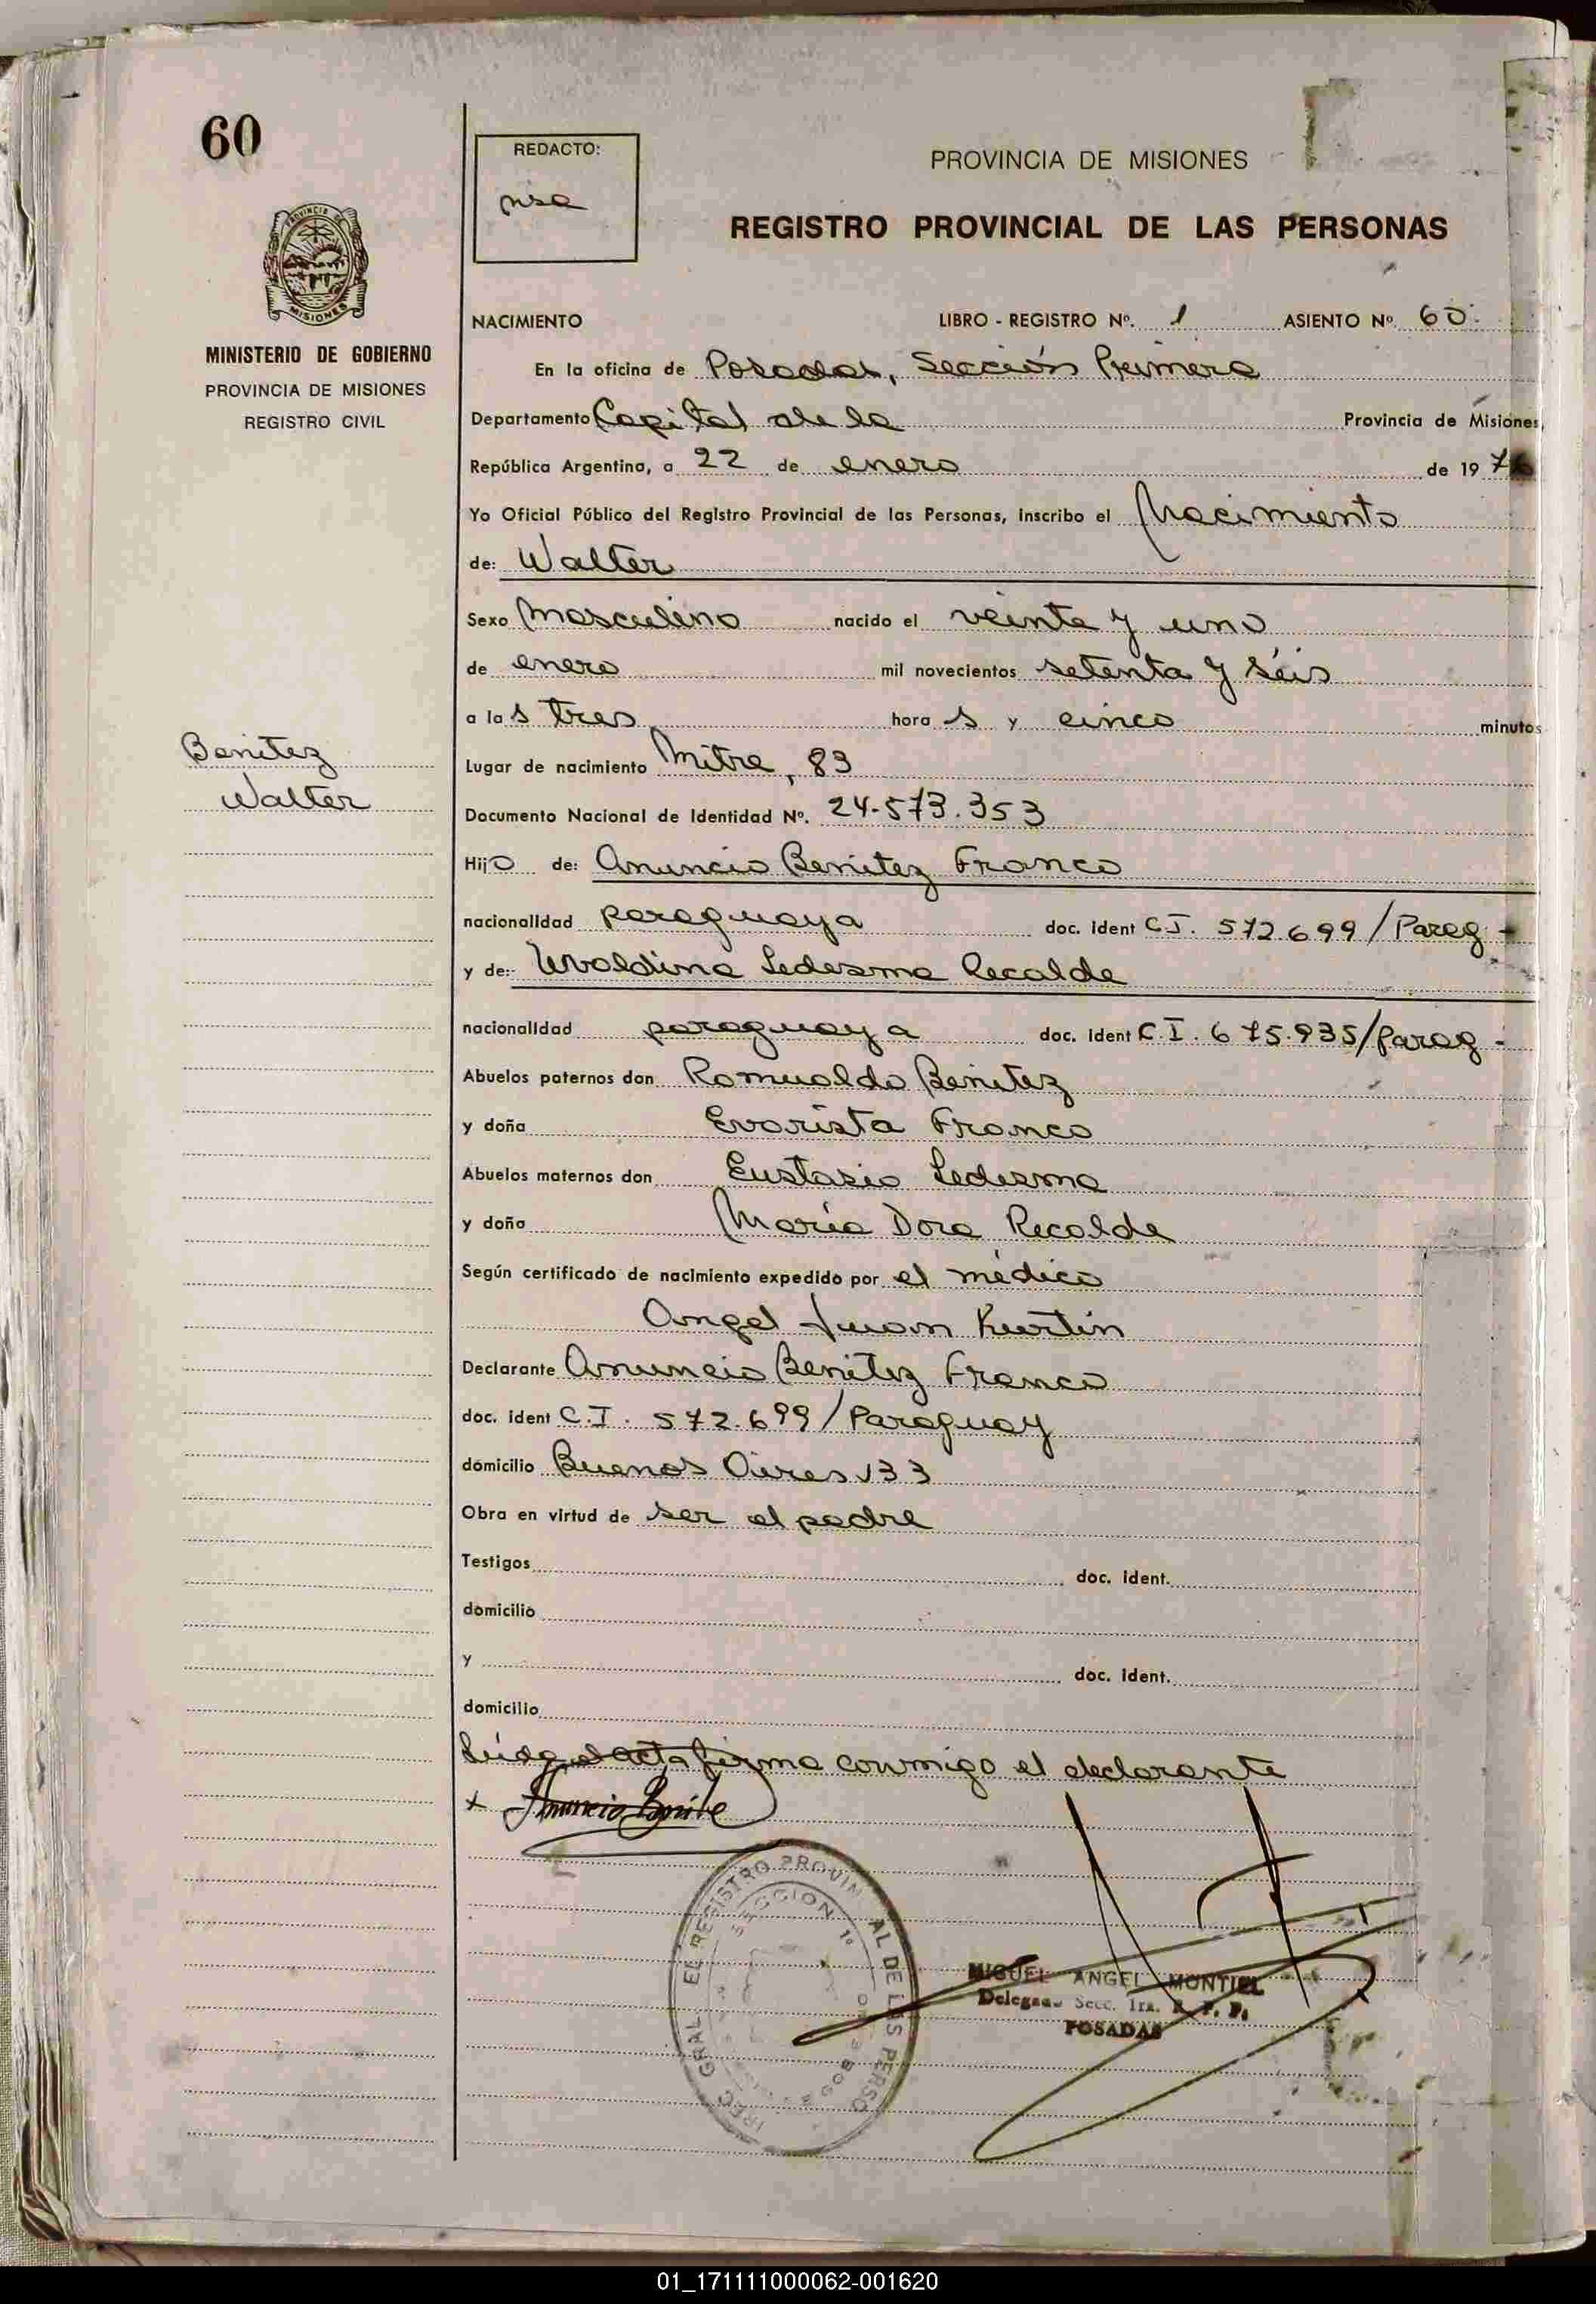 60
REDACTO:
PROVINCIA DE MISIONES
REGISTRO PROVINCIAL DE LAS PERSONAS
PROVINCIA DE
MISIONES
MINISTERIO DE GOBIERNO
PROVINCIA DE MISIONES
REGISTRO CIVIL
NACIMIENTO LIBRO - REGISTRO Nº. 1 ASIENTO Nº 60
En la oficina de Posadas, Sección Primera
Departamento Capital de la Provincia de Misiones,
República Argentina, a 22 de enero de 1976
Yo Oficial Público del Registro Provincial de las Personas, inscribo el Nacimiento
de: Walter
Sexo Masculino nacido el veinte y uno
de enero mil novecientos setenta y séis
a las tres horas y cinco minutos
Benitez
Walter
Lugar de nacimiento Mitre, 83
Documento Nacional de Identidad Nº. 24.573.353
Hijo de: Anuncio Benitez Franco
nacionalidad paraguaya doc. ident C.I. 572.699/Parag -
y de: Ledesma Recalde
nacionalidad paraguaya doc. ident C.I. 675.935/Parag -
Abuelos paternos don Romualdo Benitez
y doña Evarista Franco
Abuelos maternos don Eustasio Ledesma
y doña María Dora Recalde
Según certificado de nacimiento expedido por el médico
Angel Juan Kurtin
Declarante Anuncio Benitez Franco
doc. ident C.I. 572.699/Paraguay
domicilio Buenos Aires 133
Obra en virtud de ser el padre
Testigos doc. ident.
domicilio
y doc. ident.
domicilio
Leída el acta firma conmigo el declarante
x Anuncio Benite
SECCION 1º
MIGUEL ANGEL MONTIEL
Delegado Secc. 1ra. R. P. P.
POSADAS
01_171111000062-001620